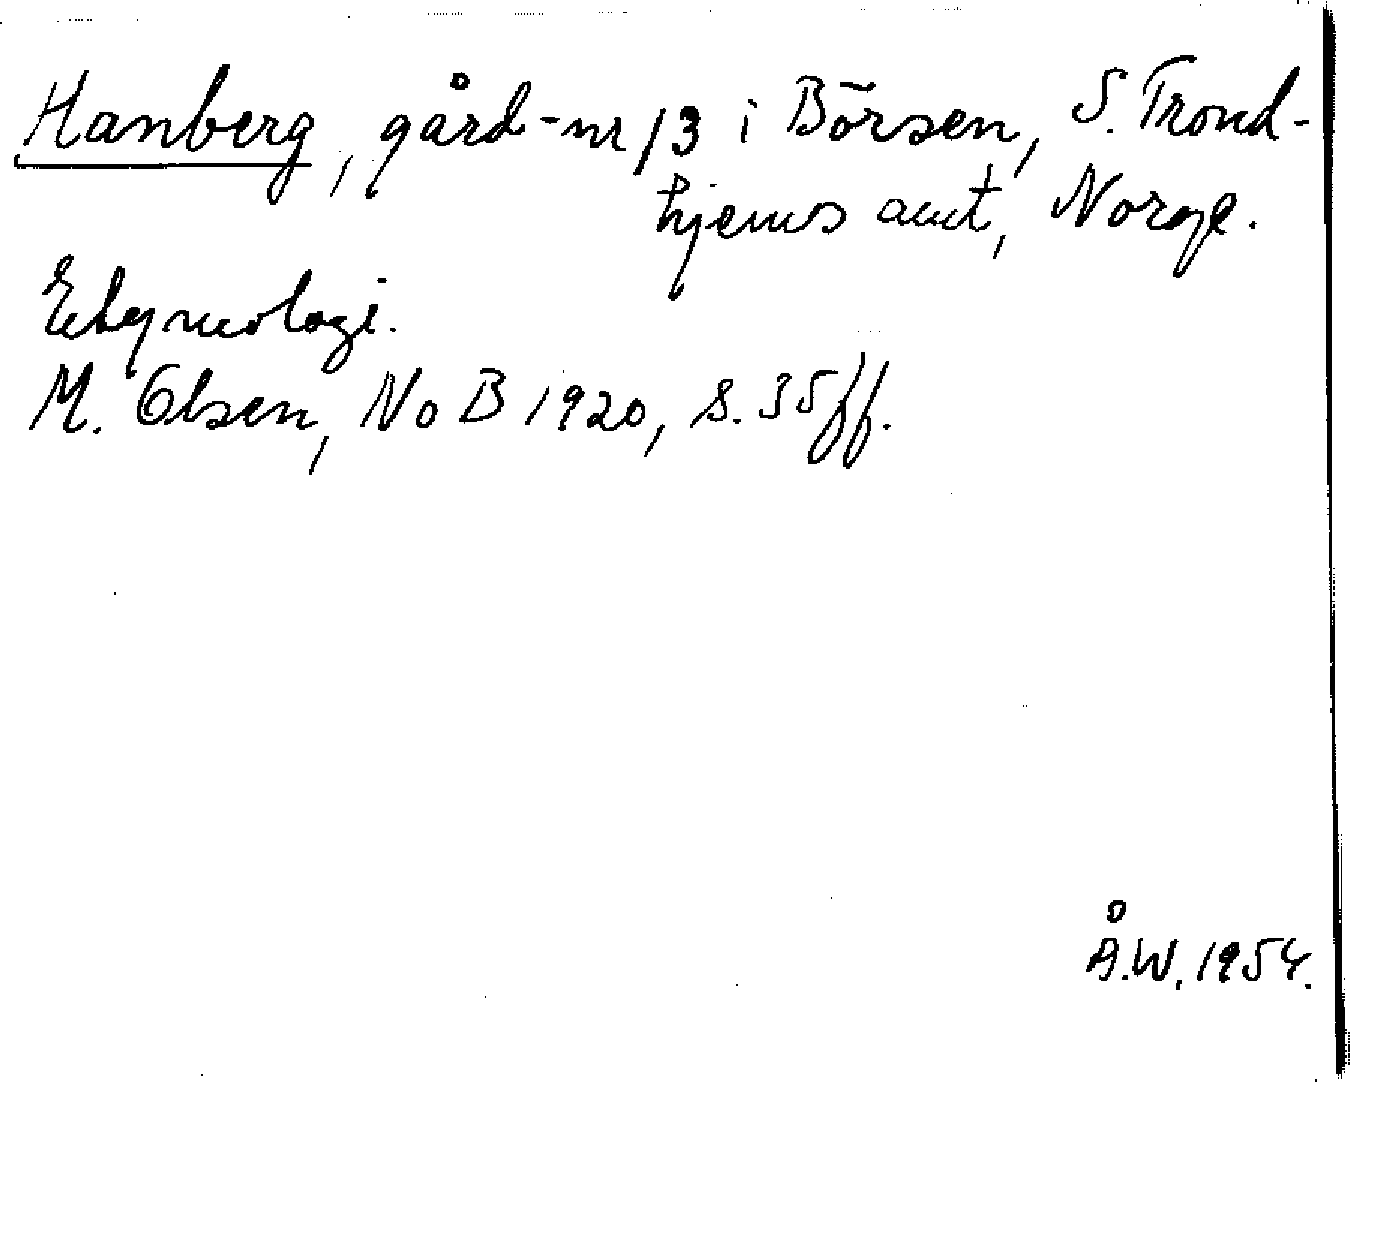 Hanberg, gård-nr 13 i Börsen, S. Trond-
hjems amt, Norge.
Etymologi.
M. Olsen, NoB 1920, s. 35 ff.
Å.W. 1954.